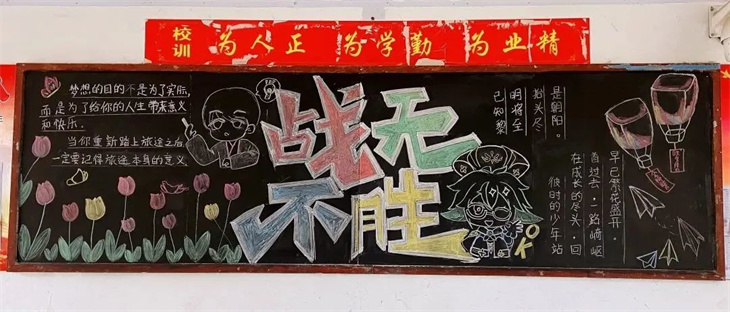 校训
为人正 为学勤 为业精
梦想的目的不是为了实际,
而是为了给你的人生带来意义
和快乐.
当你重新踏上旅途之后,
一定要记得旅途本身的意义.
战无
不胜
已知黎
明将至
抬头尽
是朝阳。
彼时的少年站
在成长的尽头,回
首过去,一路崎岖
早已繁花盛开.
OK